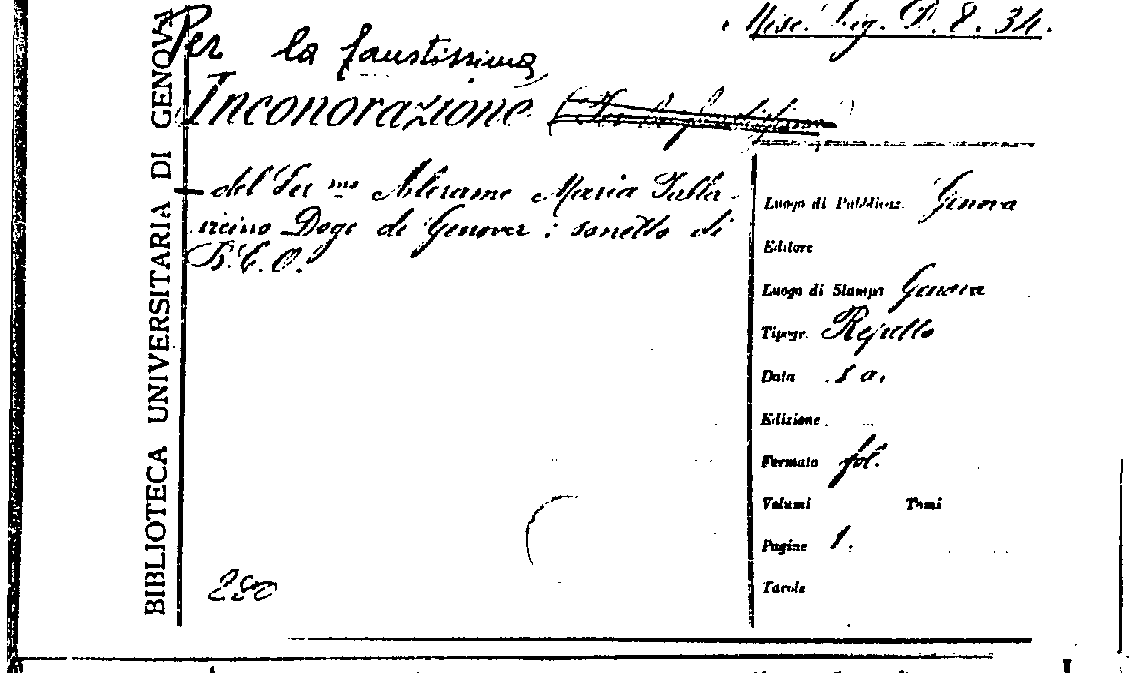 Misc. Lig. D. 8. 34.
Per la faustissima
Inconorazione
del Ser mo Alerame Maria Palla-
vicino Doge di Genova: sonetto di
B. C. O.
Luogo di Pubblicaz. Genova
Editore
Luogo di Stampa Genova
Tipogr. Repetto
Data s a.
Edizione
Formato fol.
Volumi Tomi
Pagine 1.
Tavole
280
BIBLIOTECA UNIVERSITARIA DI GENOVA